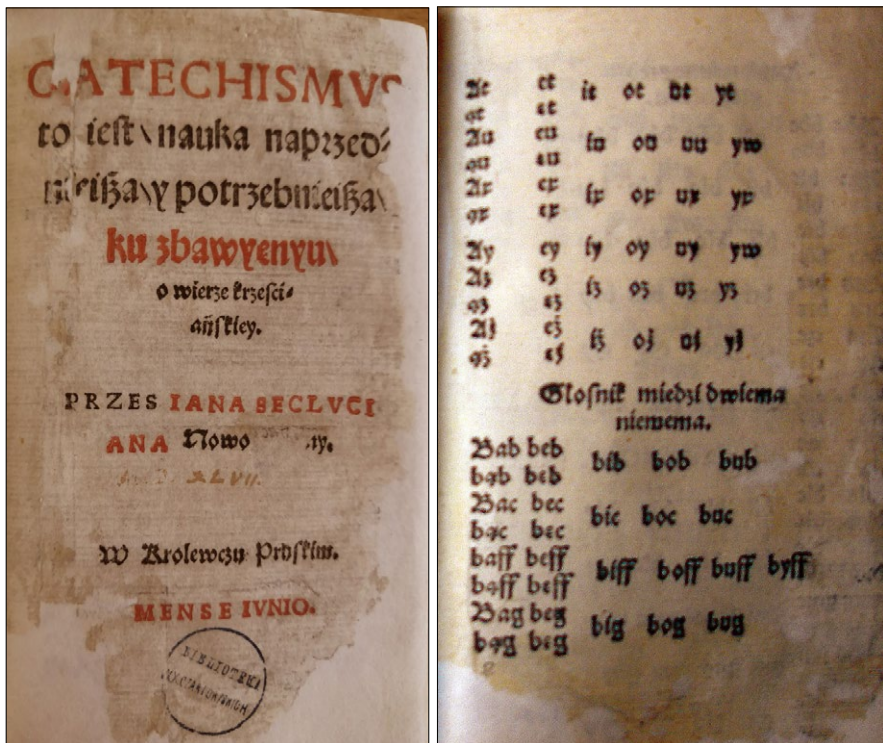 CATECHISMVS
to iest\ nauka naprzed⸗
nieißa\ y potrzebnieißa\
ku zbawyenyu\
o wierze krzesci⸗
ańskiey.
PRZES IANA SECLVCI
ANA Nowo
XLVII.
W Krolewczu Pruskim.
MENSE IVNIO.
BIBLIOTEKI
At et it ot ut yt
ąt ęt
Au eu iu ou uu yw
ąu ęu
Ax ex ix ox ux yx
ąx ęx
Ay ey iy oy uy yw
Az ez iz oz uz yz
ąz ęz
Aż eż iż oż uż yż
ąż ęż
Glosnik miedzi dwiema
niemema.
Bab beb bib bob bub
bąb bęb
Bac bec bic boc buc
bąc bęc
baff beff biff boff buff byff
bąff bęff
Bag beg big bog bug
bąg bęg